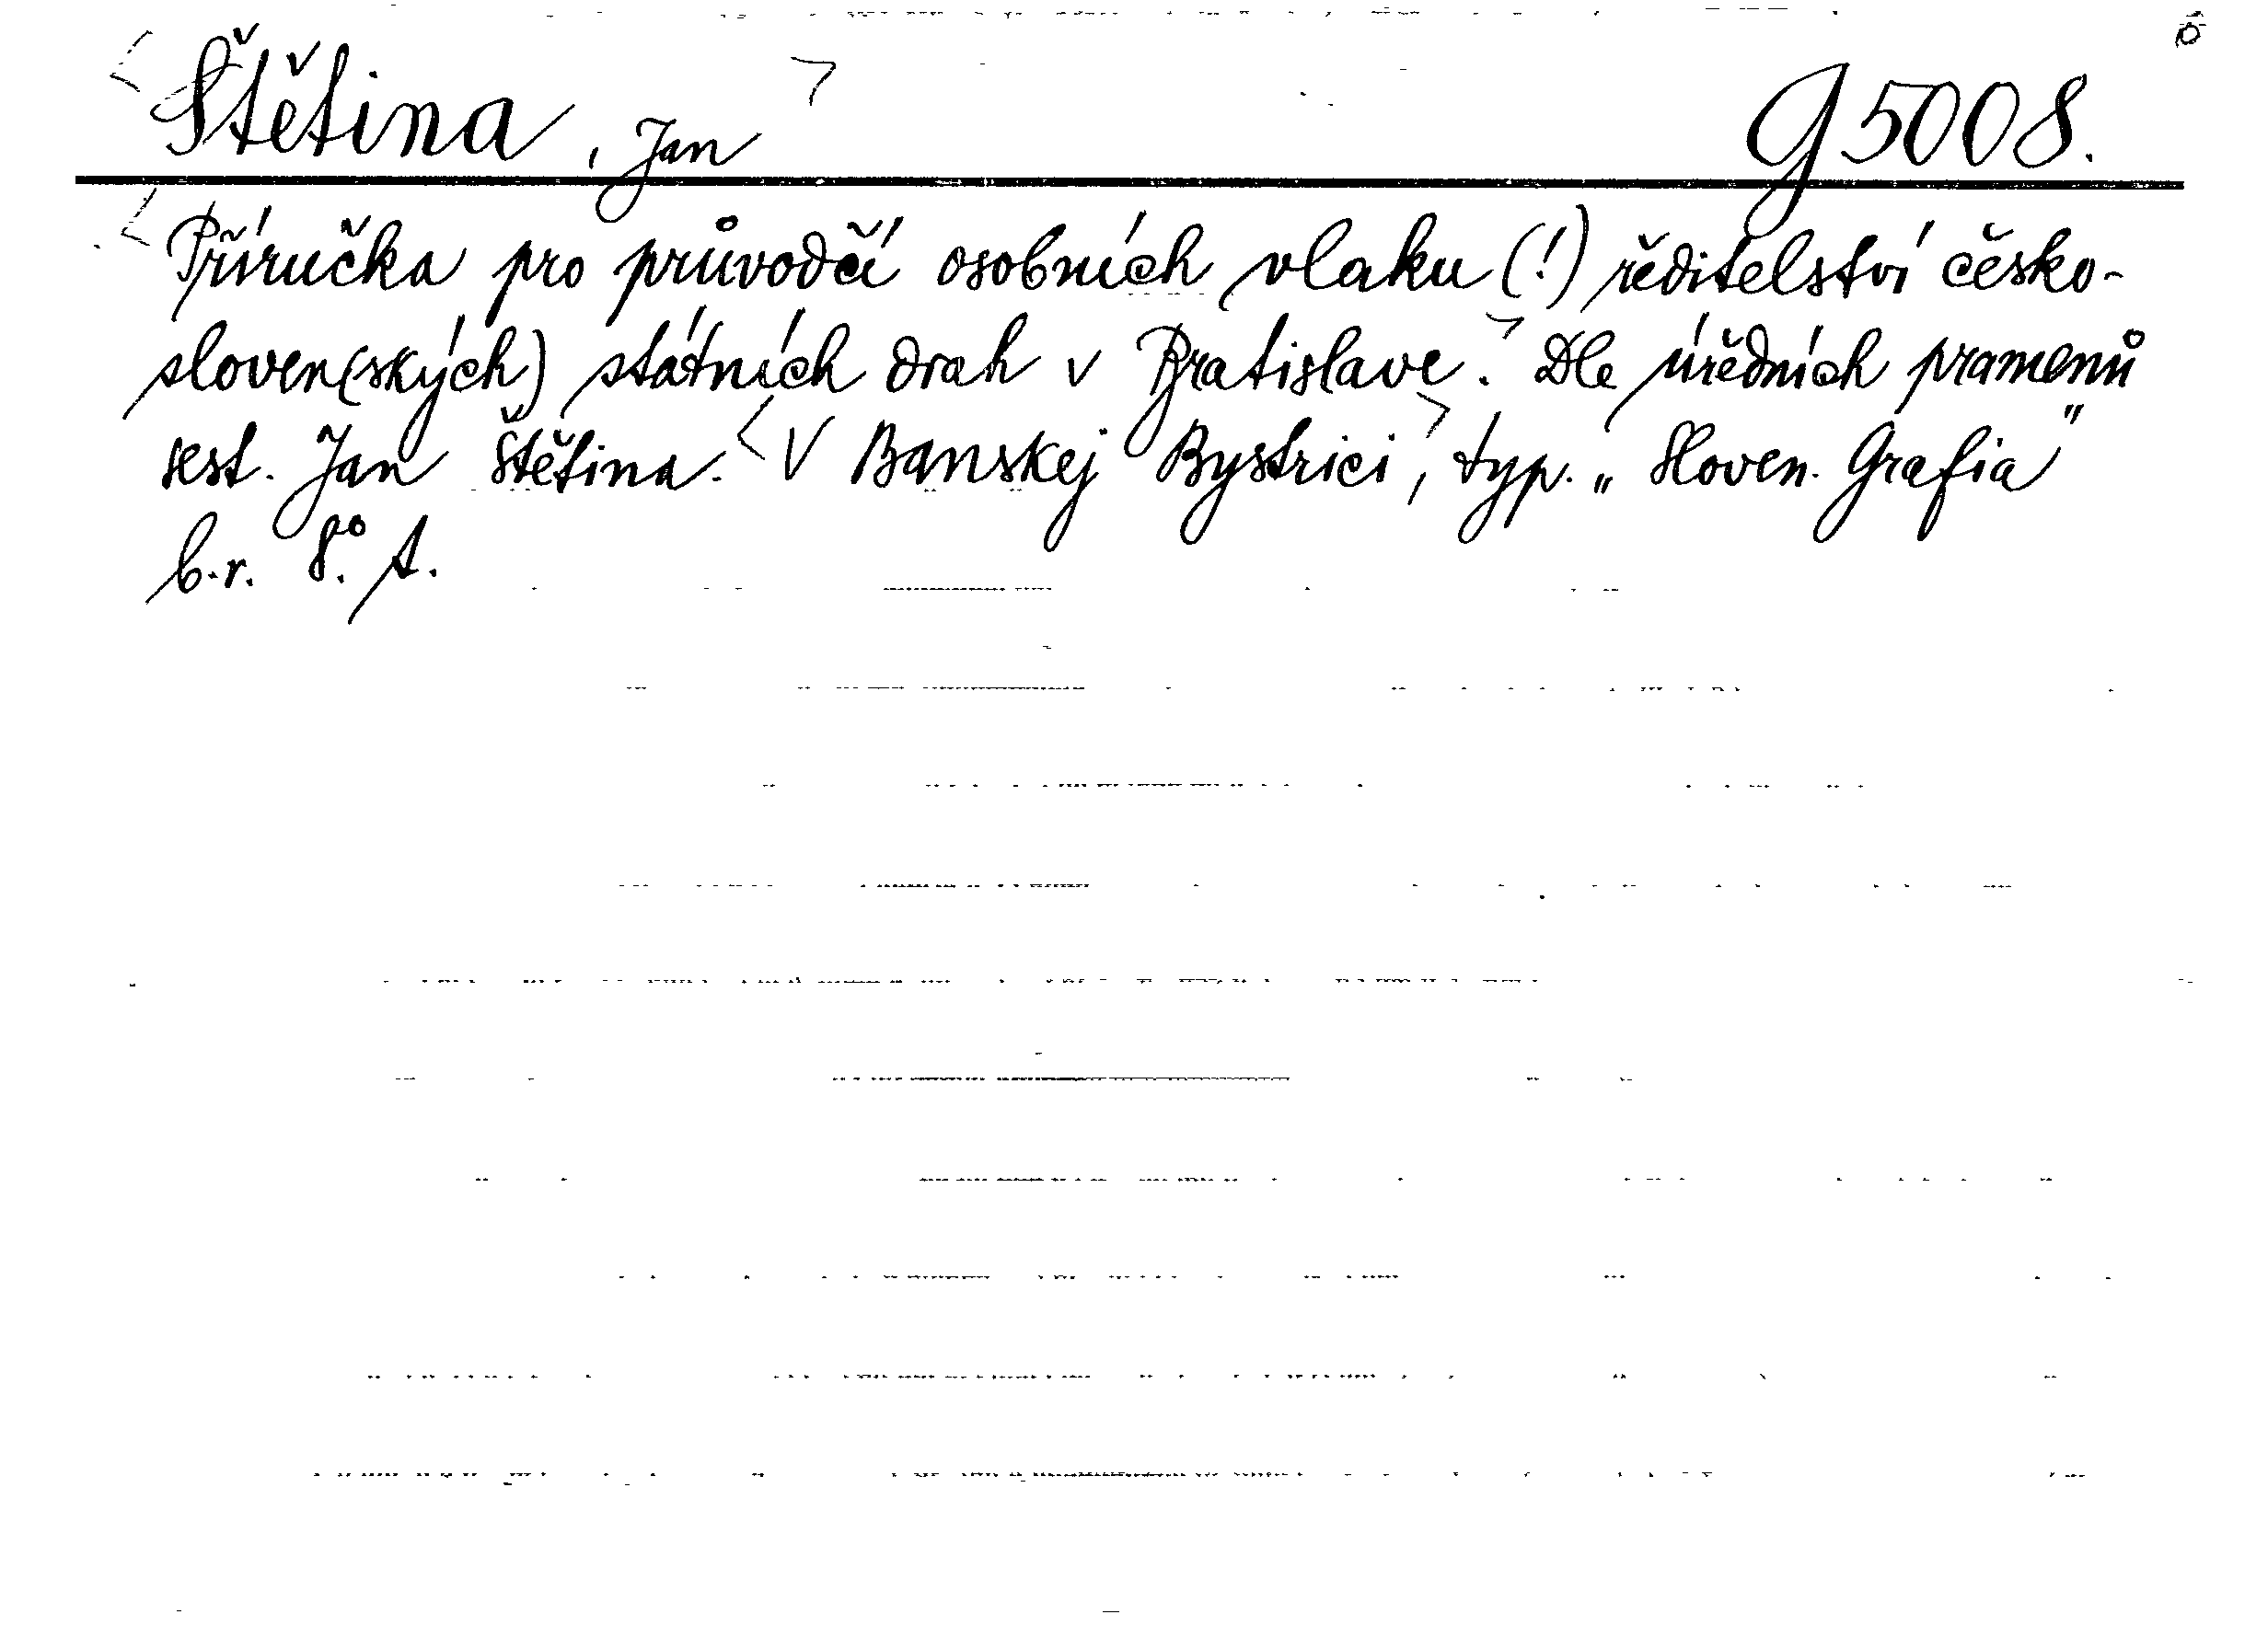 Štětina, Jan G 5008.
Příručka pro průvodčí osobních vlaku (!) ředitelství česko-
sloven(ských) státních drah v Bratislave. Dle úředních pramenů
sest. Jan Štětina. V Banskej Bystrici, typ. „Sloven. Grafia"
b.r. 8°. A.